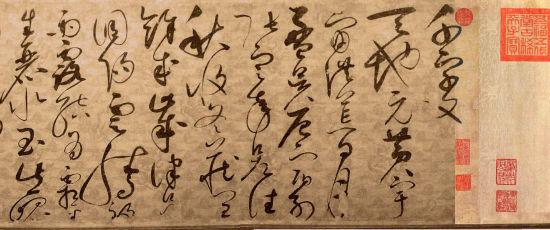 千字文
天地元黃宇
宙洪荒日月
盈昃辰宿列
張寒來暑往
秋收冬藏閏
餘成歲律呂
調陽雲騰致
雨露結為霜
生麗水玉出崑